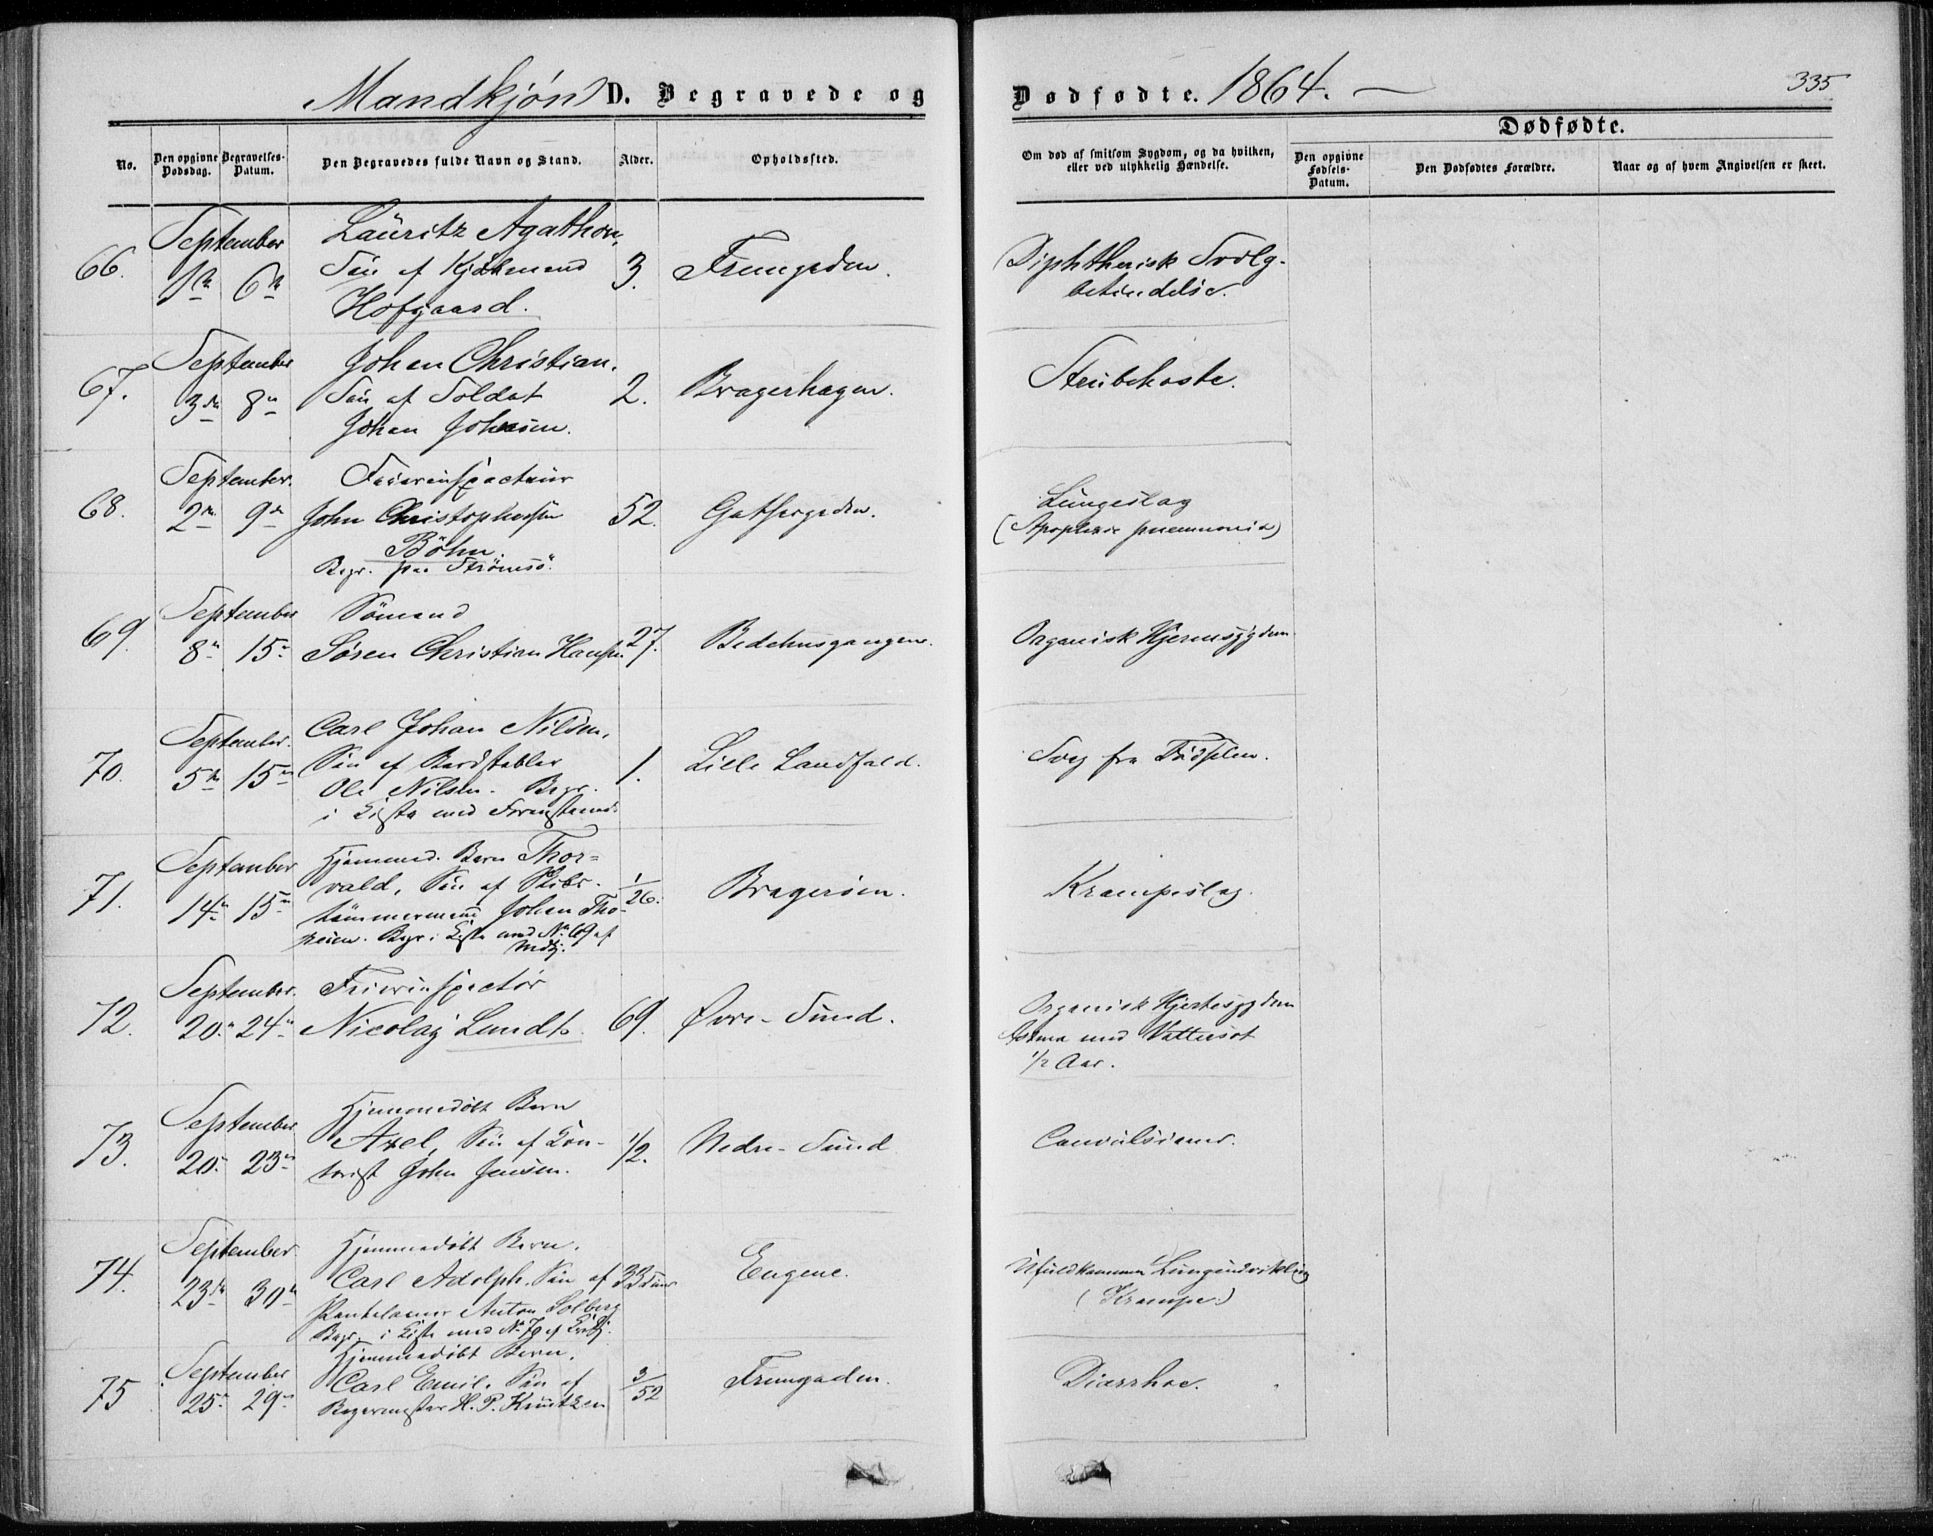 Mandkjøn D. Begravede og
No.
Den opgivne Dødsdag.
Begravelses-Datum.
Den Begravedes fulde Navn og Stand.
Alder.
Opholdssted.
66.
September
1ste 6te
Lauritz Agathon,
Søn af Kjøbmand
Hofgaard.
3.
Frumgaden.
67.
September
3die 8de
Johan Christian.
Søn af Soldat
Johan Johnsen.
2.
Bragerhagen.
68.
September.
2den 9de
Feierinspecteur
John Christophersen
Böhn.
Begr. paa Strømsø.
52.
69.
September
8de 15de
Sömand
Søren Christian Hansen
27.
Bedehusgangen.
70.
September.
5te 15de
Carl Johan Nilsen,
Søn af Bordstabler
Ole Nilsen. Begr.
i Kiste med
1.
Lille Landfald.
71.
September
14de 15de
Hjemmed. Barn Thor=
vald, Søn af Skibs-
tømmermand Johan Tho-
Begr. i Kiste med No 69 af
Mdkj.
1/26.
Bragerøen.
72.
September.
20de 24de
Feierinspectør
Nicolaj Lundh.
69.
Øvre-Sund.
73.
September
20de 23de
Hjemmedøbt Barn
Axel, Søn af Kon-
torist John Jensen.
1/2.
Nedre-Sund
74.
September
23de 30te
Hjemmedøbt Barn.
Carl Adolph, Søn af
Anton Solberg
Begr. i Kiste med No 79 af Kvkj.
33 Timer
Eugene.
75
September
25de 29de
Hjemmedøbt Barn,
Carl Emil, Søn af
Bagermester H. P. Knutzen
3/52
Frumgaden.
Dødfødte. 1864. —
335
Om død af smitsom Sygdom, og da hvilken,
eller ved ulykkelig Hændelse.
Dødfødte.
Den opgivne Fødsels-Datum.
Den Dødfødtes Forældre.
Naar og af hvem Angivelsen er skeet.
Diphtherisk Svælg-
betændelse.
Strubehoste.
Lungeslag
(Apoplexie pneumonia)
Organisk Hjernesygdom
Svag fra Fødselen.
Krampeslag.
Organisk Hjertesygdom
Astma med Vattersot
1/2 Aar.
Convulsioner.
Ufuldkommen Lungeudvikling
(Krampe.)
Diarrhoe.